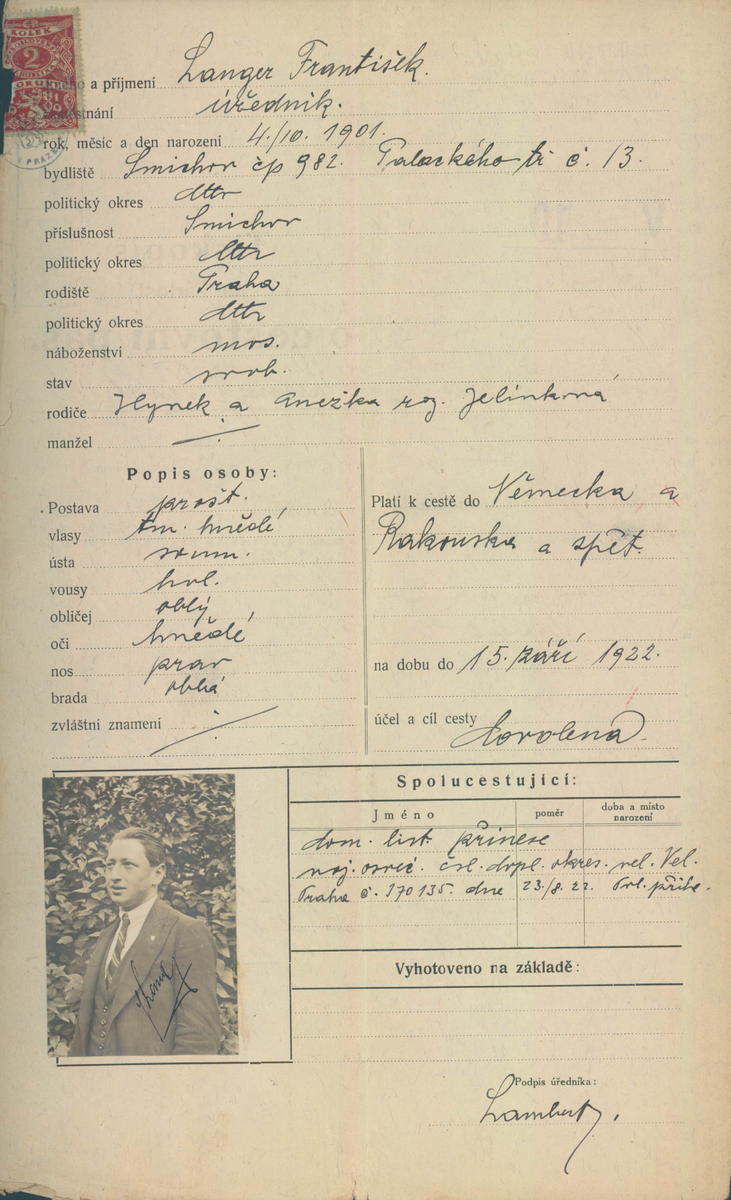 KOLEK
2
jméno a příjmení Langer František.
zaměstnání úředník.
rok, měsíc a den narození 4./10. 1901.
bydliště Smíchov čp 982. Palackého tř č. 13.
politický okres dttr
příslušnost Smíchov
politický okres dttr
rodiště Praha
politický okres dttr
náboženství mos.
stav svob.
rodiče Hynek a Anežka roz. Jelínková
manžel ./.
Popis osoby:
Postava prost.
vlasy tm. hnědé
ústa soum.
vousy hol.
obličej oblý
oči hnědé
nos prav
brada oblá
zvláštní znamení ./.
Platí k cestě do Německa a
Rakouska a zpět.
na dobu do 15. září 1922.
účel a cíl cesty dovolená.
Spolucestující:
Jméno poměr doba a místo narození
dom. list. přinese
voj. osvěč. čsl. dopl. okres. vel. Vel.
Praha č. 170135. dne 23./8. 22.
Vyhotoveno na základě:
Podpis úředníka: